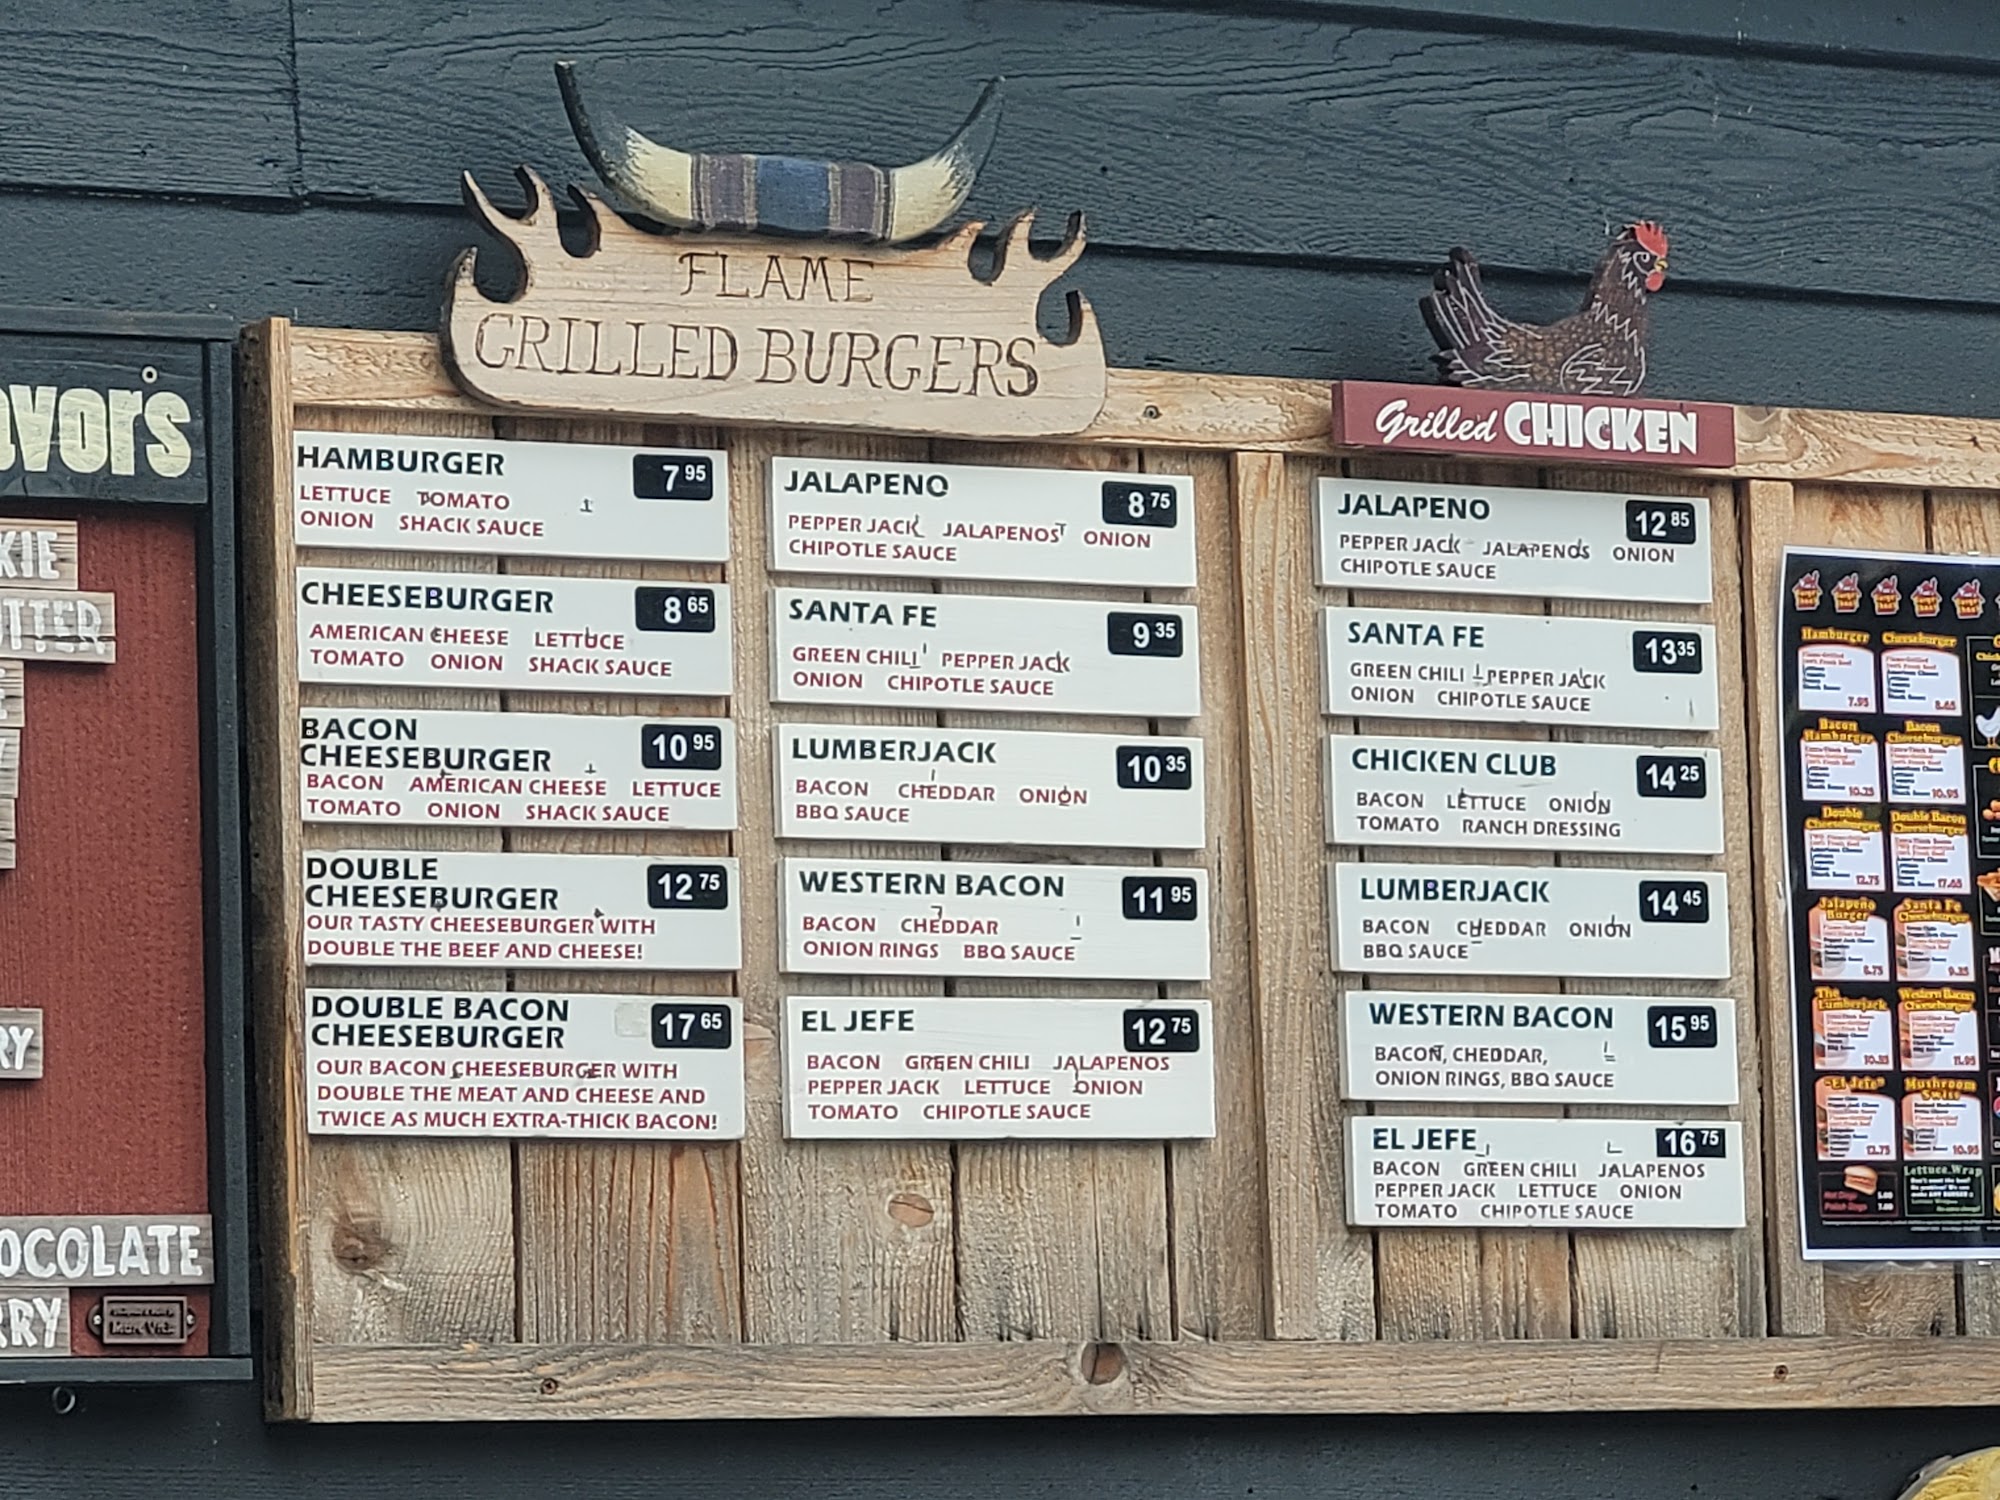 FLAME
GRILLED BURGERS
HAMBURGER 7 95
LETTUCE TOMATO
ONION SHACK SAUCE
CHEESEBURGER 8 65
AMERICAN CHEESE LETTUCE
TOMATO ONION SHACK SAUCE
BACON
CHEESEBURGER 10 95
BACON AMERICAN CHEESE LETTUCE
TOMATO ONION SHACK SAUCE
DOUBLE
CHEESEBURGER 12 75
OUR TASTY CHEESEBURGER WITH
DOUBLE THE BEEF AND CHEESE!
DOUBLE BACON
CHEESEBURGER 17 65
OUR BACON CHEESEBURGER WITH
DOUBLE THE MEAT AND CHEESE AND
TWICE AS MUCH EXTRA-THICK BACON!
JALAPENO 8 75
PEPPER JACK JALAPENOS ONION
CHIPOTLE SAUCE
SANTA FE 9 35
GREEN CHILI PEPPER JACK
ONION CHIPOTLE SAUCE
LUMBERJACK 10 35
BACON CHEDDAR ONION
BBQ SAUCE
WESTERN BACON 11 95
BACON CHEDDAR
ONION RINGS BBQ SAUCE
EL JEFE 12 75
BACON GREEN CHILI JALAPENOS
PEPPER JACK LETTUCE ONION
TOMATO CHIPOTLE SAUCE
Grilled CHICKEN
JALAPENO 12 85
PEPPER JACK JALAPENOS ONION
CHIPOTLE SAUCE
SANTA FE 13 35
GREEN CHILI PEPPER JACK
ONION CHIPOTLE SAUCE
CHICKEN CLUB 14 25
BACON LETTUCE ONION
TOMATO RANCH DRESSING
LUMBERJACK 14 45
BACON CHEDDAR ONION
BBQ SAUCE
WESTERN BACON 15 95
BACON, CHEDDAR,
ONION RINGS, BBQ SAUCE
EL JEFE 16 75
BACON GREEN CHILI JALAPENOS
PEPPER JACK LETTUCE ONION
TOMATO CHIPOTLE SAUCE
Hamburger Cheeseburger
7.95 8.65
Bacon Bacon
Hamburger Cheeseburger
10.25 10.95
Double Double Bacon
Cheeseburger Cheeseburger
12.75 17.65
Jalapeño Santa Fe
Burger Cheeseburger
8.75 9.35
The Western Bacon
Lumberjack Cheeseburger
10.35 11.95
"El Jefe" Mushroom
Swiss
12.75 10.95
Lettuce Wrap